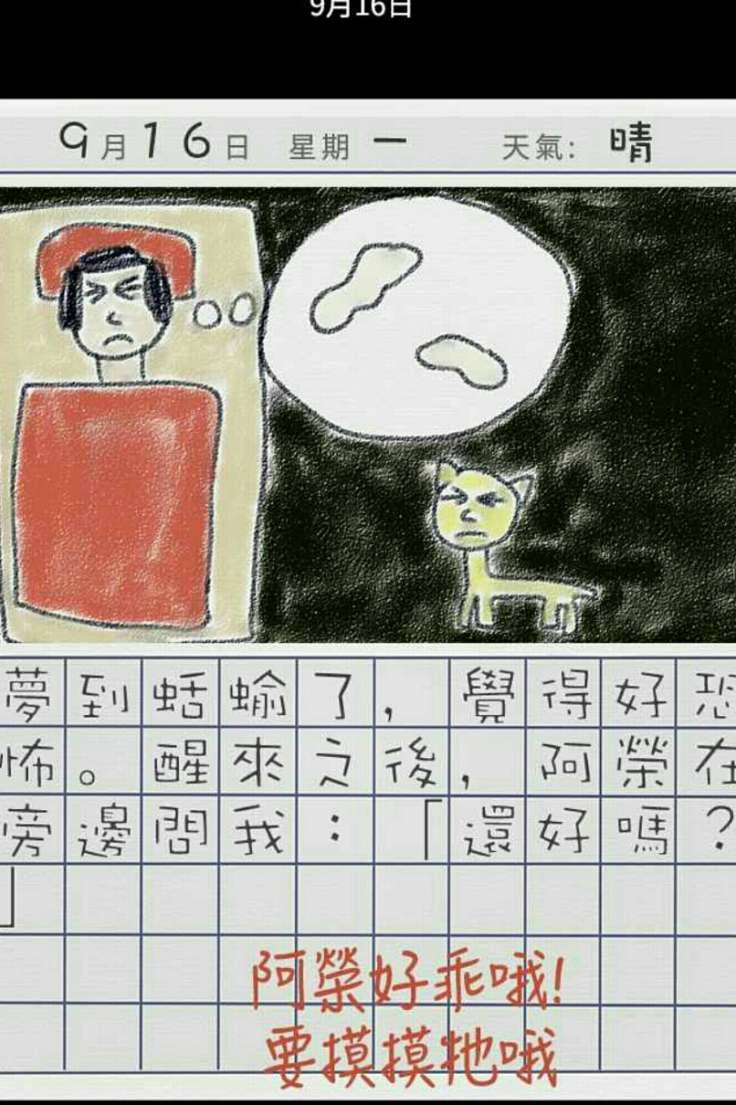 9月16日
9月16日 星期一 天氣: 晴
夢到蛞蝓了，覺得好恐
怖。醒來之後，阿榮在
旁邊問我：「還好嗎？
」
阿榮好乖哦!
要摸摸牠哦